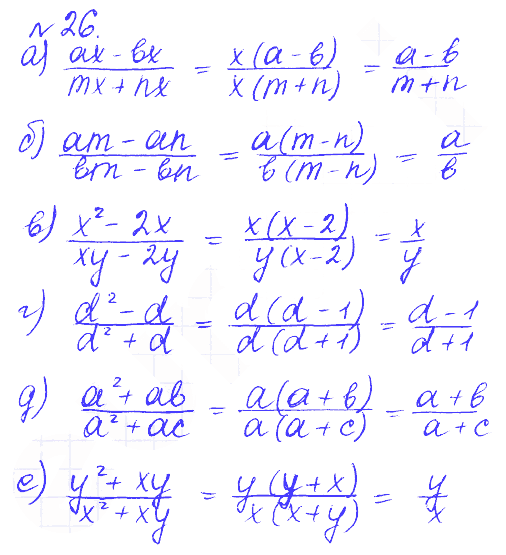 № 26.
а) (ax - bx)/(mx + nx) = x(a - b)/x(m + n) = (a - b)/(m + n)
б) (am - an)/(bm - bn) = a(m - n)/b(m - n) = a/b
в) (x² - 2x)/(xy - 2y) = x(x - 2)/y(x - 2) = x/y
г) (d² - d)/(d² + d) = d(d - 1)/d(d + 1) = (d - 1)/(d + 1)
д) (a² + ab)/(a² + ac) = a(a + b)/a(a + c) = (a + b)/(a + c)
е) (y² + xy)/(x² + xy) = y(y + x)/x(x + y) = y/x